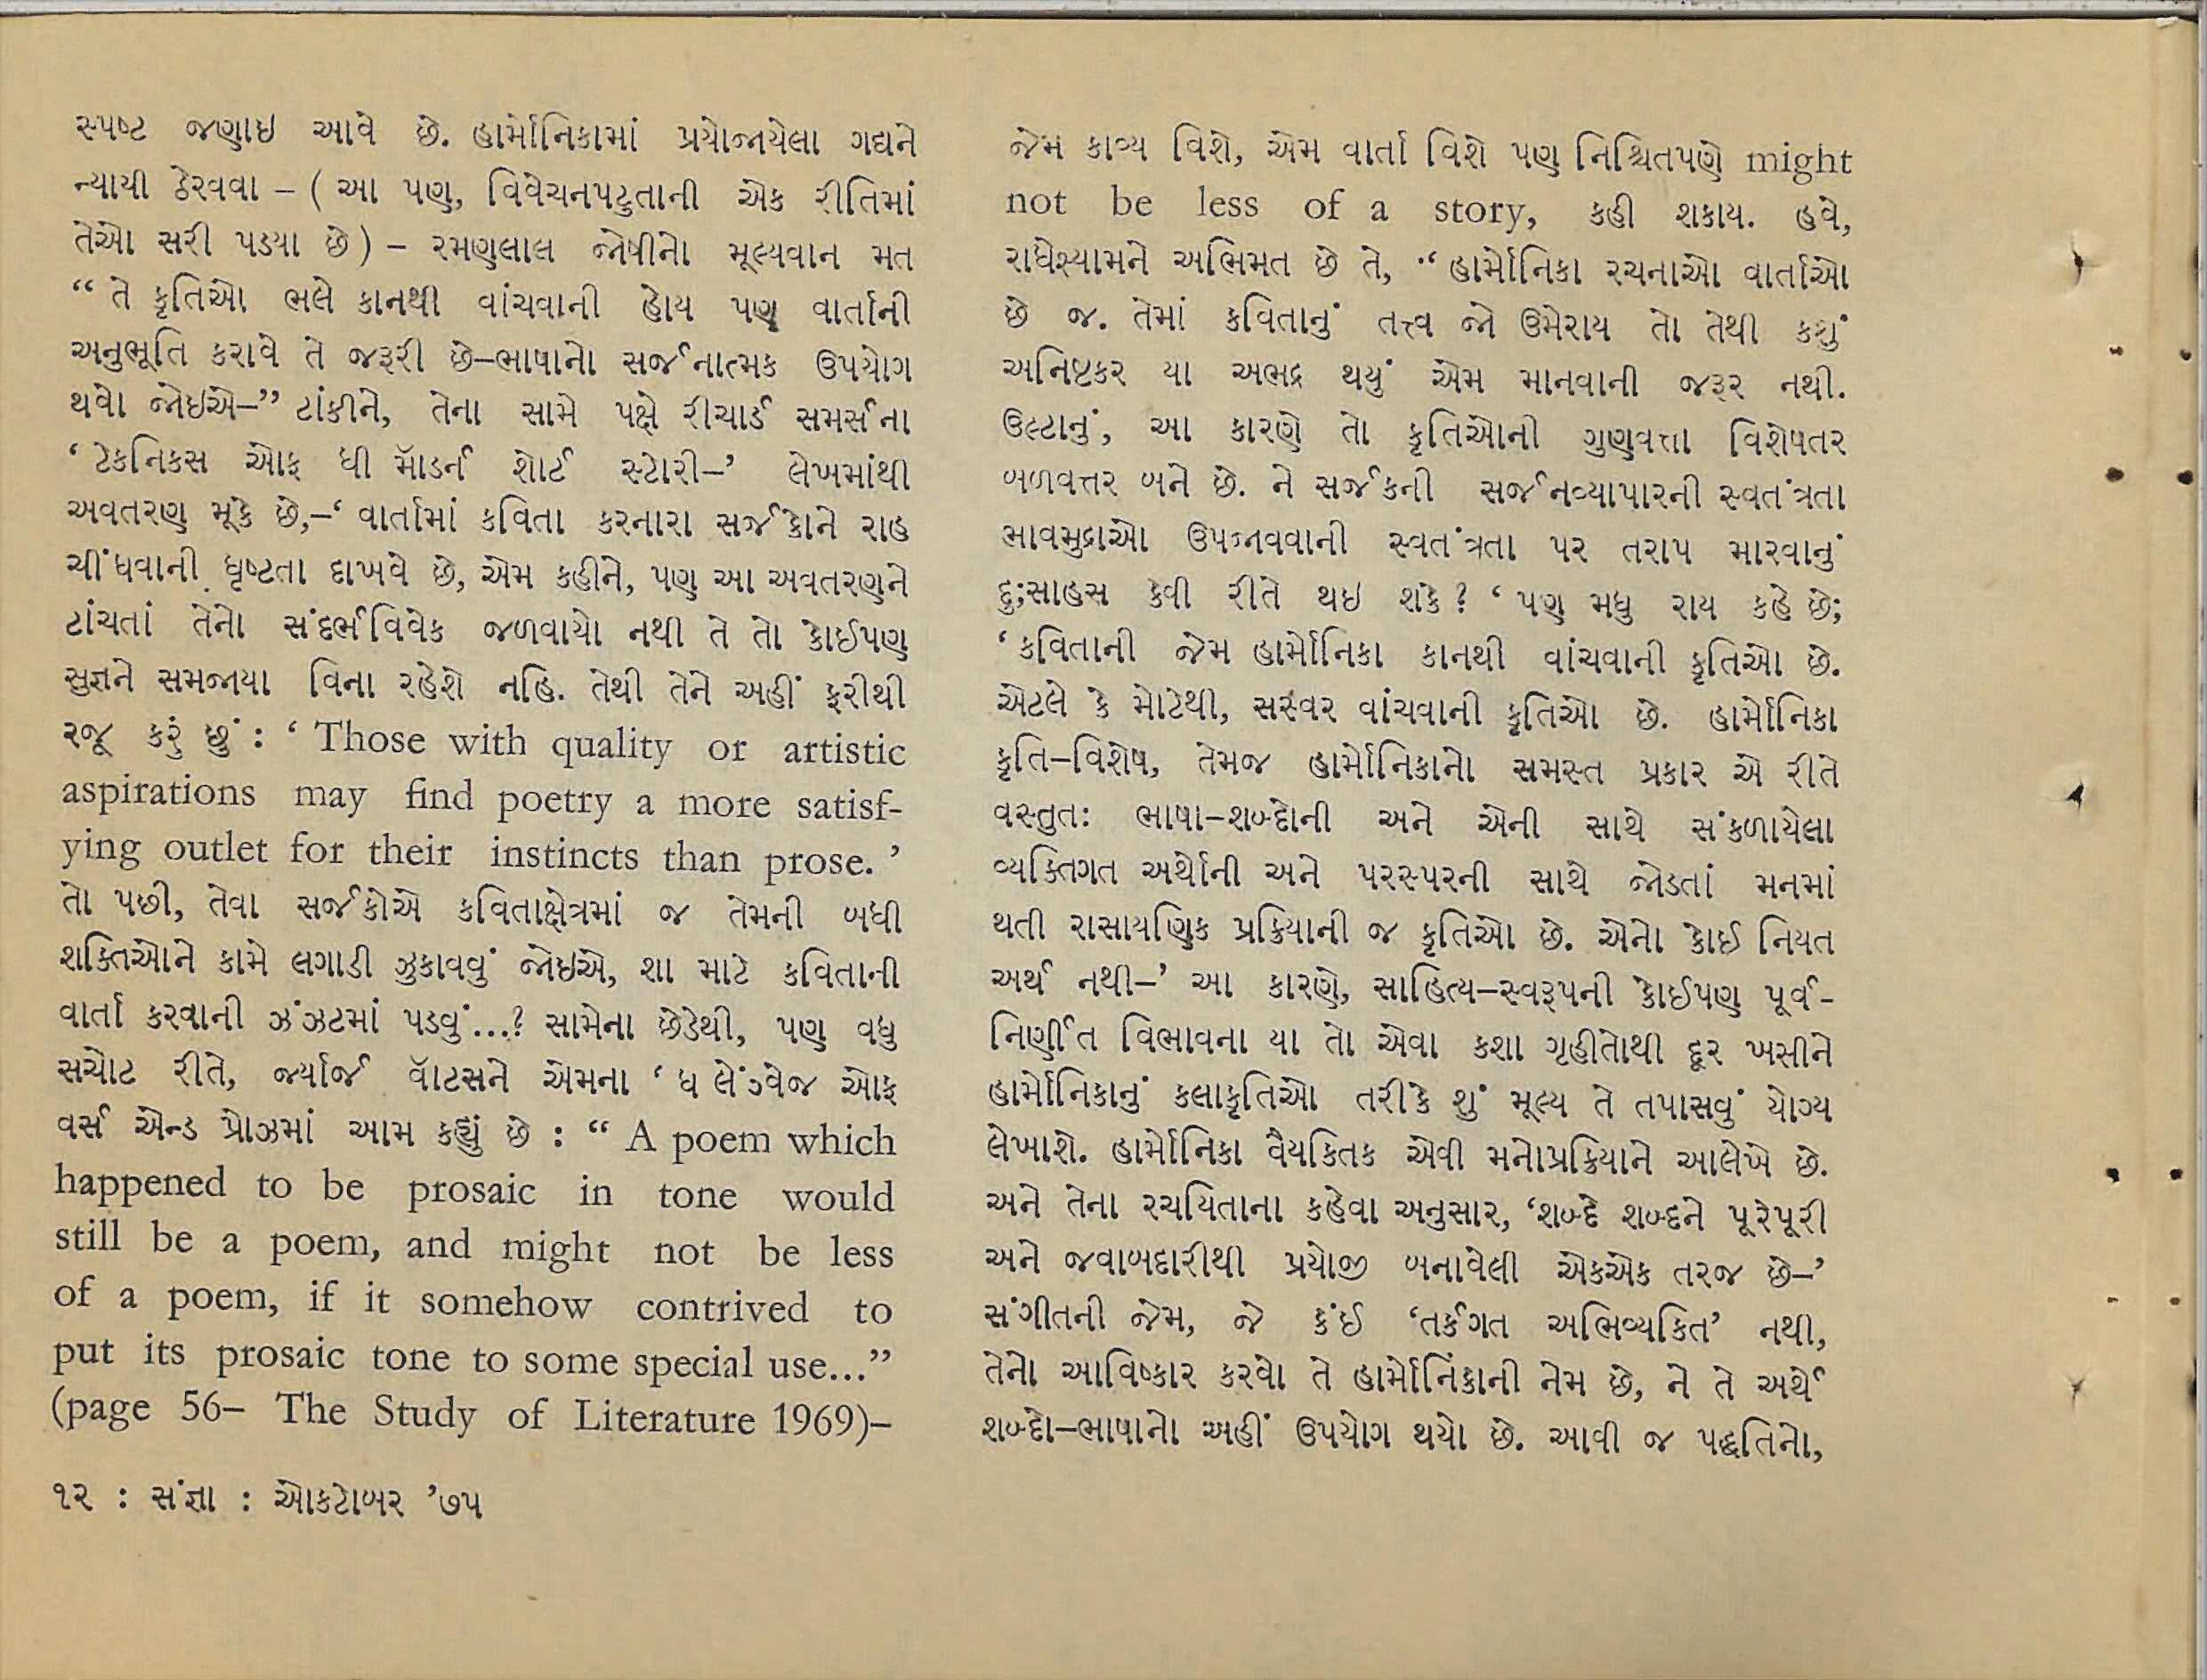 સ્પષ્ટ જણાઇ આવે છે. હાર્મોનિકામાં પ્રયોજાયેલા ગદ્યને
ન્યાયી ઠેરવવા – ( આ પણ, વિવેચનપટુતાની એક રીતિમાં
તેઓ સરી પડયા છે ) – રમણલાલ જોષીનો મૂલ્યવાન મત
“ તે કૃતિઓ ભલે કાનથી વાંચવાની હોય પણ વાર્તાની
અનુભૂતિ કરાવે તે જરૂરી છે–ભાષાનો સર્જનાત્મક ઉપયોગ
થવો જોઇએ–” ટાંકીને, તેના સામે પક્ષે રીચાર્ડ સમર્સના
‘ ટેકનિકસ ઓફ ધી મૉડર્ન શોર્ટ સ્ટોરી–’ લેખમાંથી
અવતરણ મૂકે છે,–‘ વાર્તામાં કવિતા કરનારા સર્જકોને રાહ
ચીંધવાની ધૃષ્ટતા દાખવે છે, એમ કહીને, પણ આ અવતરણને
ટાંચતાં તેનો સંદર્ભવિવેક જળવાયો નથી તે તો કોઈપણ
સુજ્ઞને સમજાયા વિના રહેશે નહિ. તેથી તેને અહીં ફરીથી
રજૂ કરું છું : ‘ Those with quality or artistic
aspirations may find poetry a more satisf-
ying outlet for their instincts than prose. ’
તો પછી, તેવા સર્જકોએ કવિતાક્ષેત્રમાં જ તેમની બધી
શક્તિઓને કામે લગાડી ઝુકાવવું જોઇએ, શા માટે કવિતાની
વાર્તા કરવાની ઝંઝટમાં પડવું...? સામેના છેડેથી, પણ વધુ
સચોટ રીતે, જ્યોર્જ વૉટસને એમના ‘ ધ લેંગ્વેજ ઓફ
વર્સ એન્ડ પ્રોઝમાં આમ કહ્યું છે : “ A poem which
happened to be prosaic in tone would
still be a poem, and might not be less
of a poem, if it somehow contrived to
put its prosaic tone to some special use...”
(page 56– The Study of Literature 1969)–
૧૨ : સંજ્ઞા : ઓકટોબર ’૭૫
જેમ કાવ્ય વિશે, એમ વાર્તા વિશે પણ નિશ્ચિતપણે might
not be less of a story, કહી શકાય. હવે,
રાધેશ્યામને અભિમત છે તે, “ હાર્મોનિકા રચનાઓ વાર્તાઓ
છે જ. તેમાં કવિતાનું તત્ત્વ જો ઉમેરાય તો તેથી કશું
અનિષ્ટકર યા અભદ્ર થયું એમ માનવાની જરૂર નથી.
ઉલ્ટાનું, આ કારણે તો કૃતિઓની ગુણવત્તા વિશેષતર
બળવત્તર બને છે. ને સર્જકની સર્જનવ્યાપારની સ્વતંત્રતા
ભાવમુદ્રાઓ ઉપજાવવાની સ્વતંત્રતા પર તરાપ મારવાનું
દુ;સાહસ કેવી રીતે થઇ શકે ? ‘ પણ મધુ રાય કહે છે;
‘ કવિતાની જેમ હાર્મોનિકા કાનથી વાંચવાની કૃતિઓ છે.
એટલે કે મોટેથી, સસ્વર વાંચવાની કૃતિઓ છે. હાર્મોનિકા
કૃતિ–વિશેષ, તેમજ હાર્મોનિકાનો સમસ્ત પ્રકાર એ રીતે
વસ્તુતઃ ભાષા–શબ્દોની અને એની સાથે સંકળાયેલા
વ્યક્તિગત અર્થોની અને પરસ્પરની સાથે જોડતાં મનમાં
થતી રાસાયણિક પ્રક્રિયાની જ કૃતિઓ છે. એનો કોઈ નિયત
અર્થ નથી–’ આ કારણે, સાહિત્ય–સ્વરૂપની કોઈપણ પૂર્વ-
નિર્ણીત વિભાવના યા તો એવા કશા ગૃહીતોથી દૂર ખસીને
હાર્મોનિકાનું કલાકૃતિઓ તરીકે શું મૂલ્ય તે તપાસવું યોગ્ય
લેખાશે. હાર્મોનિકા વૈયકિતક એવી મનોપ્રક્રિયાને આલેખે છે.
અને તેના રચયિતાના કહેવા અનુસાર, ‘શબ્દે શબ્દને પૂરેપૂરી
અને જવાબદારીથી પ્રયોજી બનાવેલી એકએક તરજ છે–’
સંગીતની જેમ, જે કંઈ ‘તર્કગત અભિવ્યકિત’ નથી,
તેનો આવિષ્કાર કરવો તે હાર્મોનિકાની નેમ છે, ને તે અર્થે
શબ્દો–ભાષાનો અહીં ઉપયોગ થયો છે. આવી જ પદ્ધતિનો,